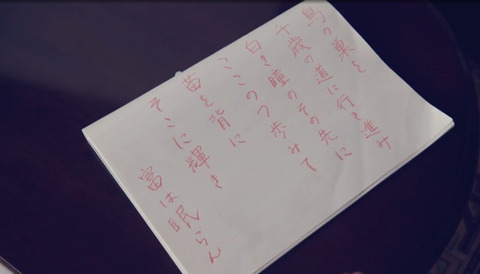 鳥の巣を
千歳の道に行き進み
白き瞳のその先に
ここのつ歩みて
苗を背に
そこに輝き
富は眠らん